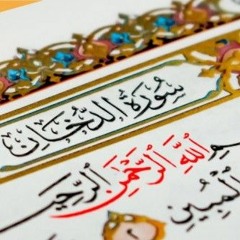 سُورَةُ الدُّخَانِ
ٱللَّهِ ٱلرَّحْمَٰنِ ٱلرَّحِيمِ
ٱلْمُبِينِ